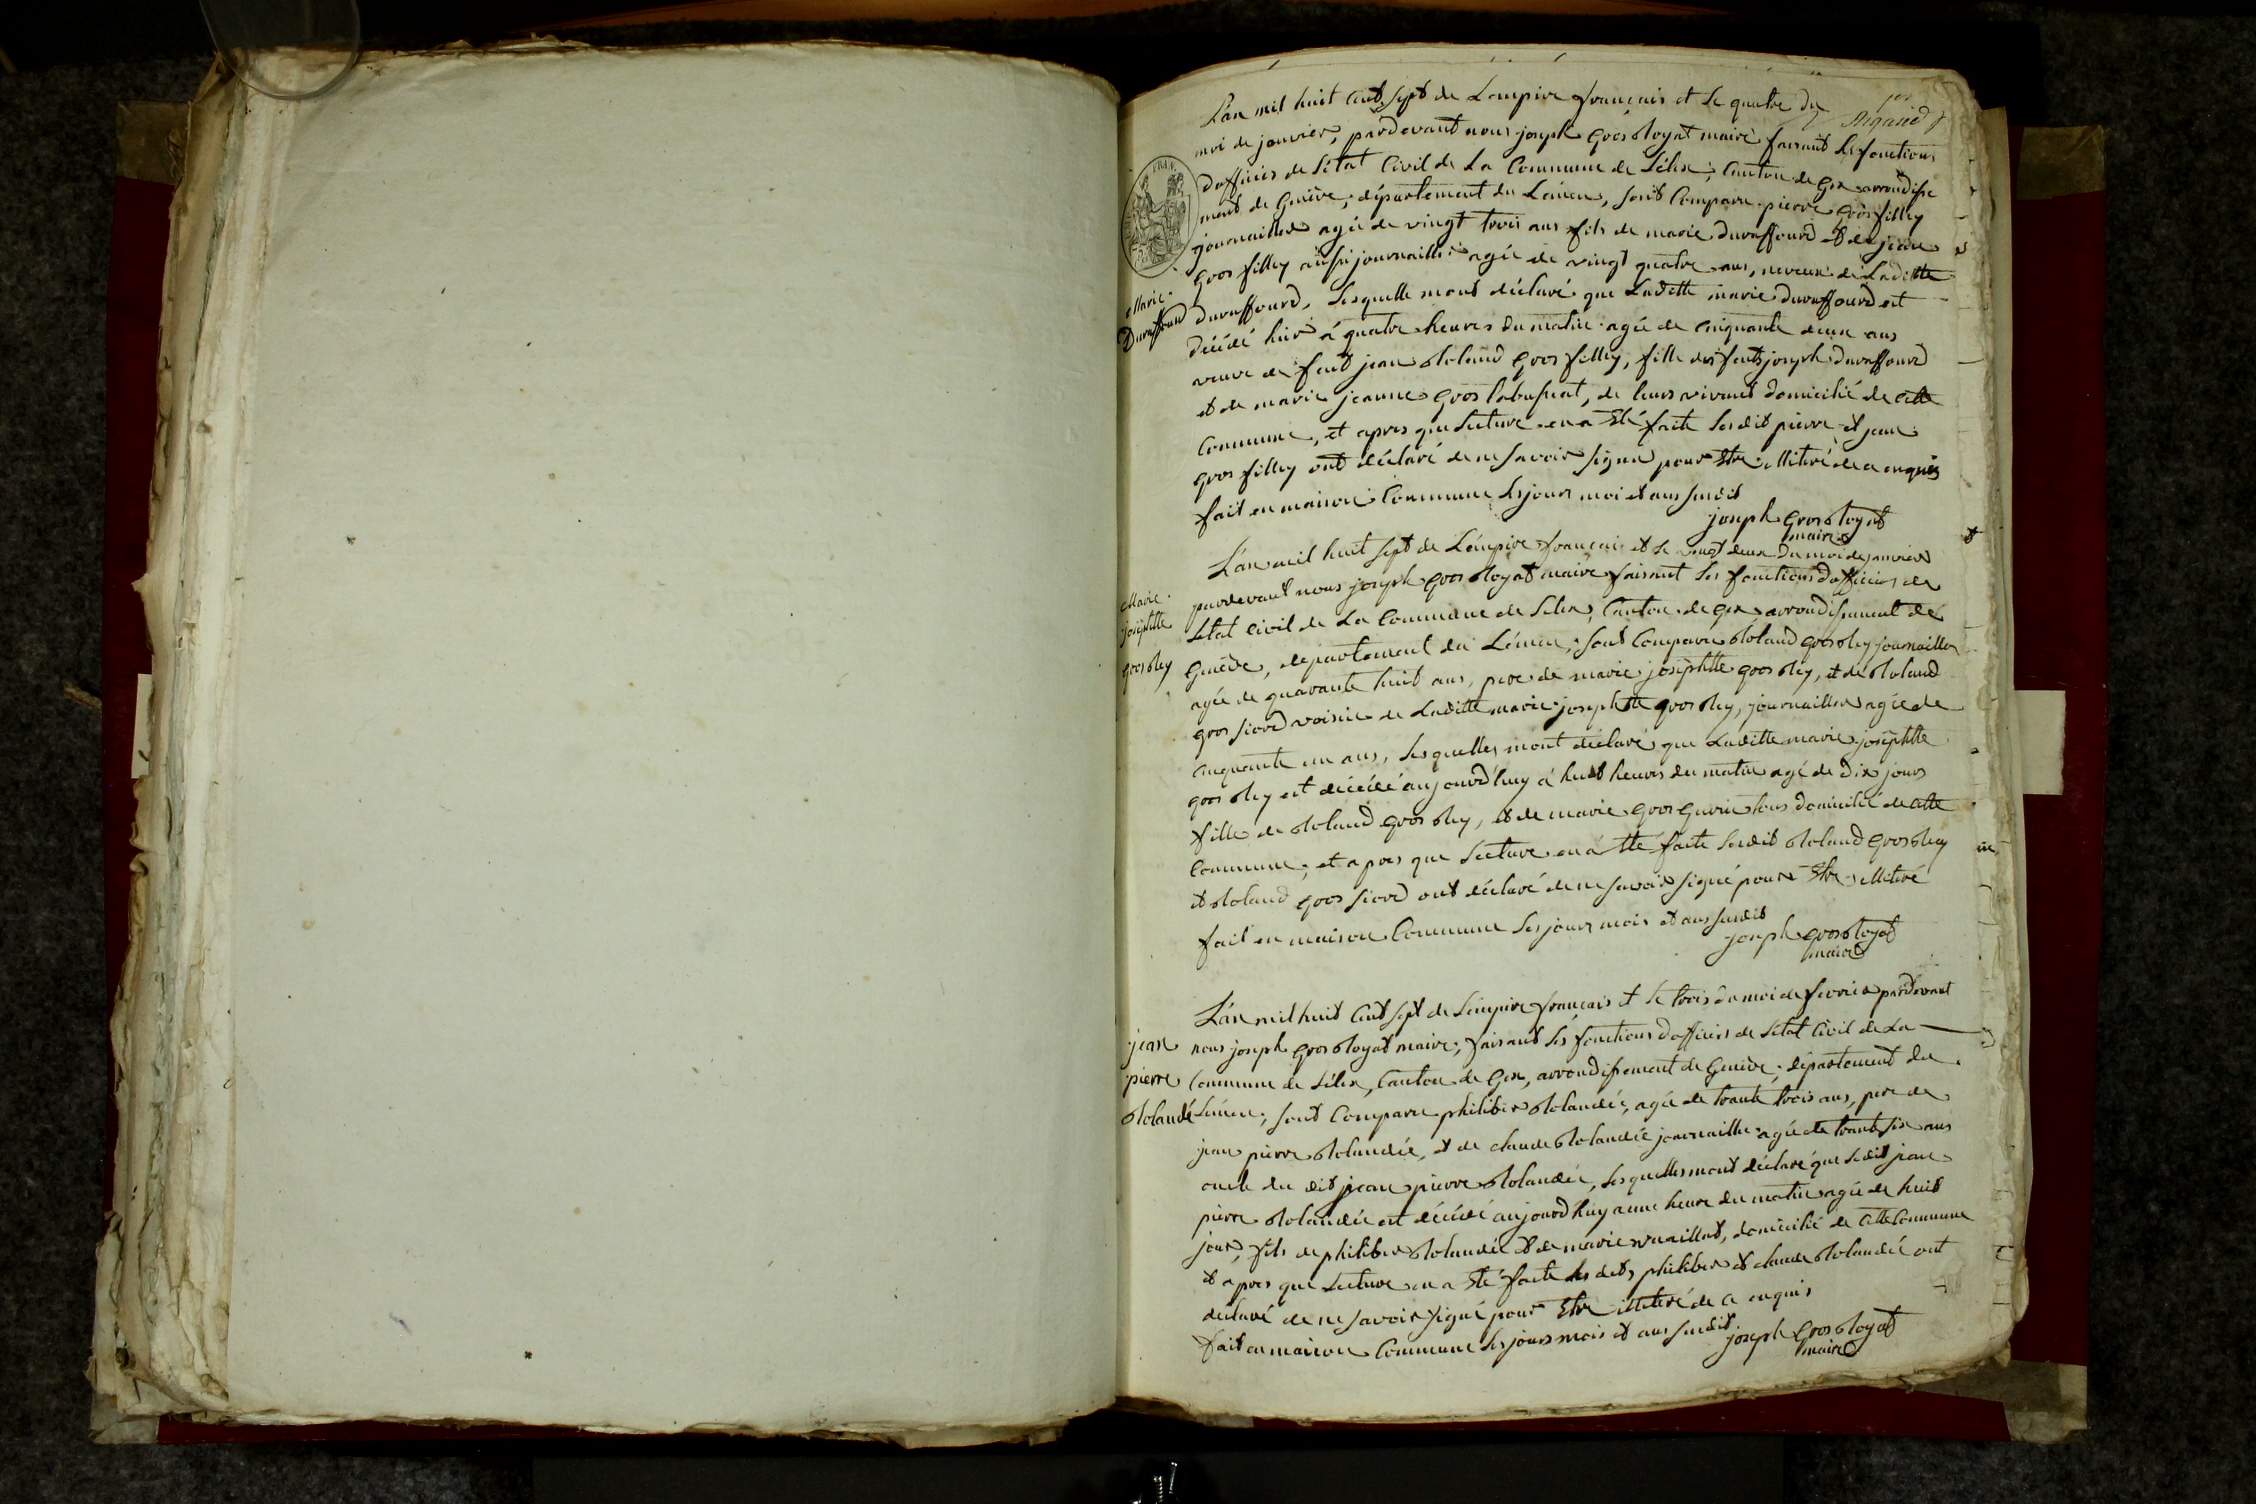 L'an mil huit cent sept de Lempire français et le quatre du
moi de janvier, pardevant nous joseph grosroyat maire faisant les fonctions
d'officier de létat Civil de la Commune de Lélex, Canton de Gex arrondisse
ment de Genève, département du Léman, sont Comparu pierre grosfilley
journaillier agée de vingt trois ans fils de marie duraffourd et de jean
gros filley aussi journaillier agée de vingt quatre ans, neveux de Laditte
Marie
Duraffourd
duraffourd, lesquelle mont déclaré que Laditte marie duraffourd est
décédé hier à quatre heures du matin agée de cinquante deux ans
veuve de feut jean Roland gros filley, fille des feuts joseph duraffourd
et de marie jeanne gros de leurs vivant domicilié de cette
Commune, et apres que Lecture en a Eté faite lesdit pierre et jean
gros filley ont déclaré de ne savoir signer pour Etre illitiré de a enquis
fait en maison Commune les jours moi et ans susdit
joseph grosroyat
maire
L'an mil huit sept de Lémpire français et le vingt deux du moi de janvier
pardevant nous joseph gros Royat maire faisant les fonctions d'officier de
Marie
joséphtte
gros Rey
Létat civil de La Commune de Lelex, Canton de Gex, arrondissement de
Genève, departement du Léman, sont Comparu Roland gros Rey journaillier
agée de quarante huit ans, pere de marie joséphtte gros Rey, et de Roland
gros siord voisin de Laditte marie joséphtte gros Rey, journaillier agée de
cinquante un ans, lesquelles mont déclaré que Laditte marie joséphtte
gros Rey est décédé aujourd'huy à huit heures du matin agé de dix jours
fille de Roland gros Rey, et de marie gros gurin tous domicilié de cette
Commune, et apres que Lecture en à Eté faite lesdit Roland gros Rey
et Roland gros siord ont déclaré de ne savoir signé pour Etre illitiré
fait en maison Commune les jours mois et ans susdit
joseph grosroyat
maire
L'an mil huit Cent sept de Lémpire français et le trois du moi de fevrier pardevant
jean
pierre
Rolandé
nous joseph gros Royat maire, faisant les fonctions d'officier de létat Civil de La
Commune de Lélex, Canton de Gex, arrondissement de Genève, département du
Léman, sont Comparu philiber Rolandée, agée de trante trois ans, pere de
jean pierre Rolandée, et de claude Rolandée journaillier agée de trante six ans
oncle du dit jean pierre Rolandée, lesquelles mont déclaré que Ledit jean
pierre Rolandée est décédé aujourd'huy a une heure du matin agée de huit
jour, fils de philiber Rolandée et de marie vuaillat, domicilié de Cette Commune
et apres que Lecture en a Eté faite les dits philiber et claude Rolandée ont
declaré de ne savoir signé pour Etre illitéré de a enquis
fait en maison Commune les jours mois et ans susdit
joseph grosroyat
maire